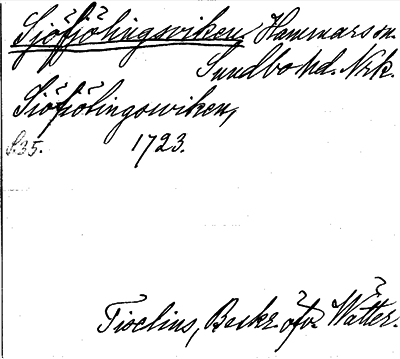 Sjöfjölingsviken, Hammars sn.
Sundbo hd. Nrk.
Siöfiölingswiken,
S. 35. 1723.
Tiselius, Beskr. öfv. Wätter.